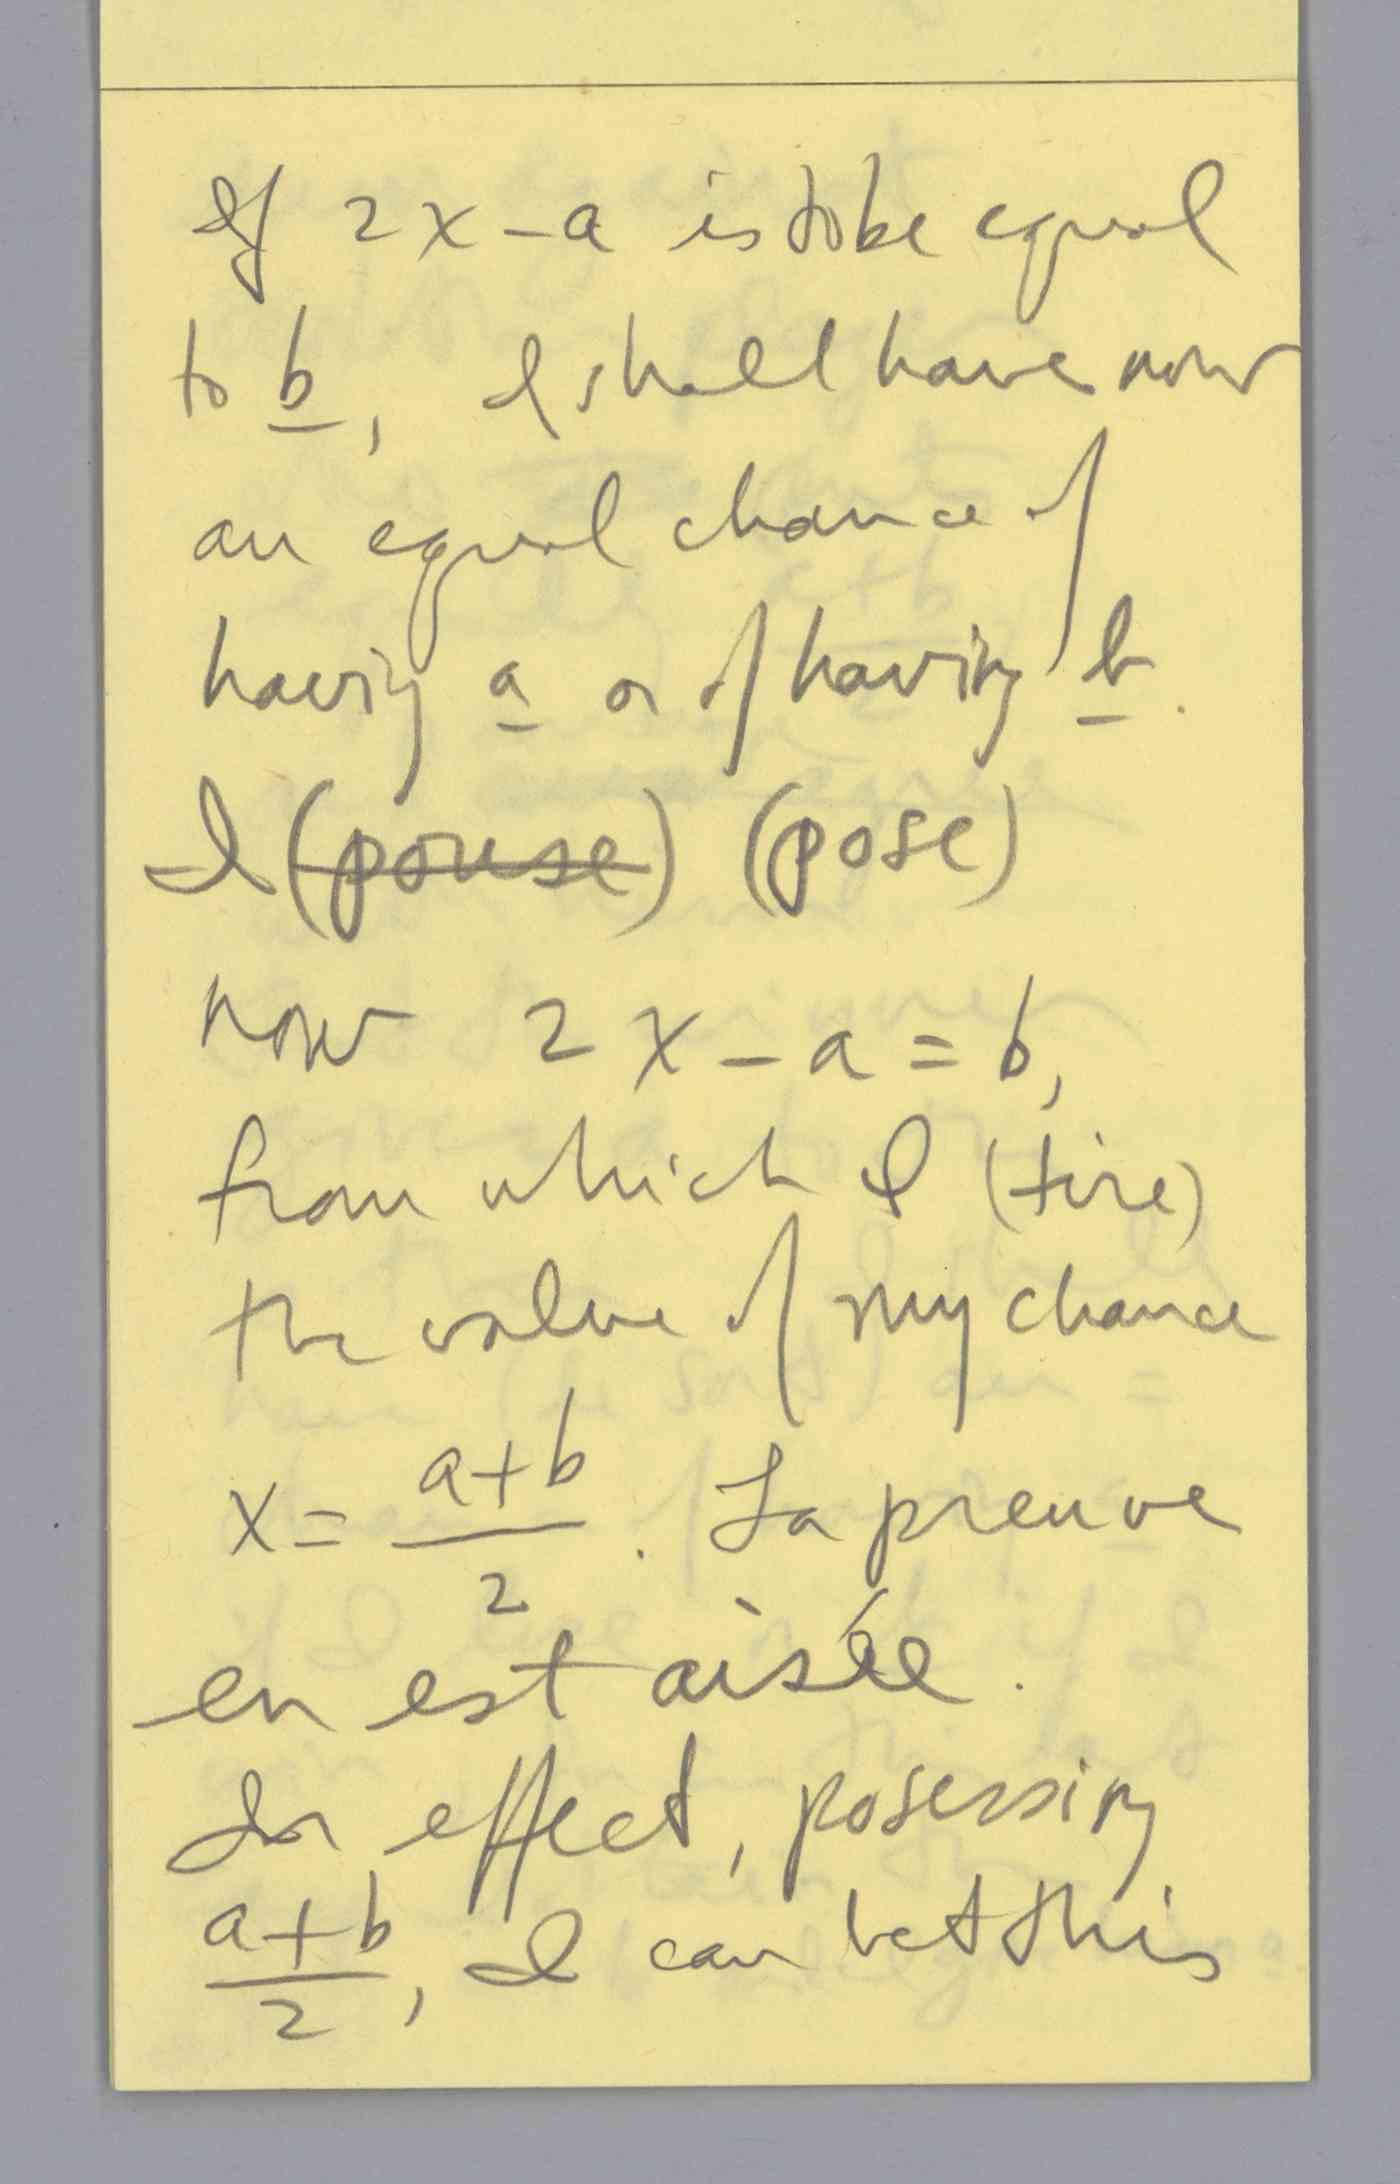 If 2x - a is to be equal
to b, I shall have now
an equal chance of
having a or of having b.
I (pouse) (pose)
now 2x - a = b,
from which I (tire)
the value of my chance
x = a+b/2. La preuve
en est aisée.
In effect, posessing
a+b/2, I can bet this